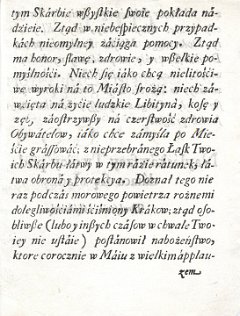 tym Skárbie wßyſtkie ſwoie pokłáda ná-
dzieie. Ztąd w niebeſpiecznych przypad-
kách nieomylney záćiąga pomocy. Ztąd
ma honor, ſławę, zdrowie, y wſzelkie po-
myślnośći. Niech ſię iáko chcą nielitośći-
we wyroki ná to Miáſto ſrożą: niech zá-
wzięta ná życie ludzkie Libityná, koſę y
zęby, záoſtrzywßy ná czerſtwość zdrowia
Obywátelow, iáko chce zámyśla po Mie-
śćie gráſſowáć; z nieprzebránego Łaſk Two-
ich Skárbu łátwy w tym ráźie rátunek, łá-
twa obroná y protekcya. Doznał tego nie
raz podczás morowego powietrza rożnemi
dolegliwośćiámi śćiśniony Krákow; ztąd oſo-
bliwße (lubo y inßych czáſow w chwale Two-
iey nie uſtáie) poſtánowił nabożeńſtwo,
ktore corocznie w Máiu z wielkim ápplau-
zem